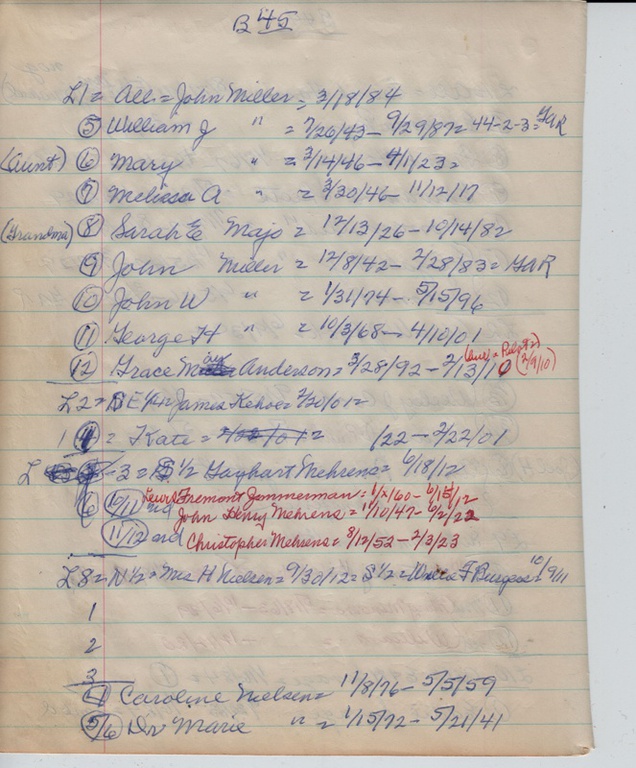 B 45
L1 = All = John Miller = 3/18/84
(5) William J " = 7/26/43 - 9/29/87 = 44-2-3 = GAR
(Aunt) (6) Mary " = 3/14/46 - 4/1/23 =
(7) Melissa A " = 3/30/46 - 11/12/17
(Grandma) (8) Sarah E Majo = 12/13/26 - 10/14/82
(9) John Miller = 12/8/42 - 2/28/83 = GAR
(10) John W " = 1/31/74 - 5/15/96
(11) George H " = 10/3/68 - 4/10/01
(12) Grace Anderson = 3/28/92 - 2/13/10 (2/9/10)
L2 = E 1/4 = James Kehoe = 2/20/01 =
1 (4) = Kate = /22 - 2/22/01
L 3 = S 1/2 Gayhart Mehrens = 6/18/12
(6) (10/11) and Fremont Zimmerman = 1/2/60 - 6/15/12
John Henry Mehrens = 11/10/47 - 6/2/22
(11/12) and Christopher Mehrens = 8/12/52 - 2/3/23
L8 = N 1/2 = Mrs H Nielsen = 9/30/12 = S 1/2 = F Burgess = 10/9/11
1
2
3
(4) Caroline Nielsen = 11/8/76 - 5/5/59
(5/6) Dr Marie " = 1/15/72 - 5/21/41